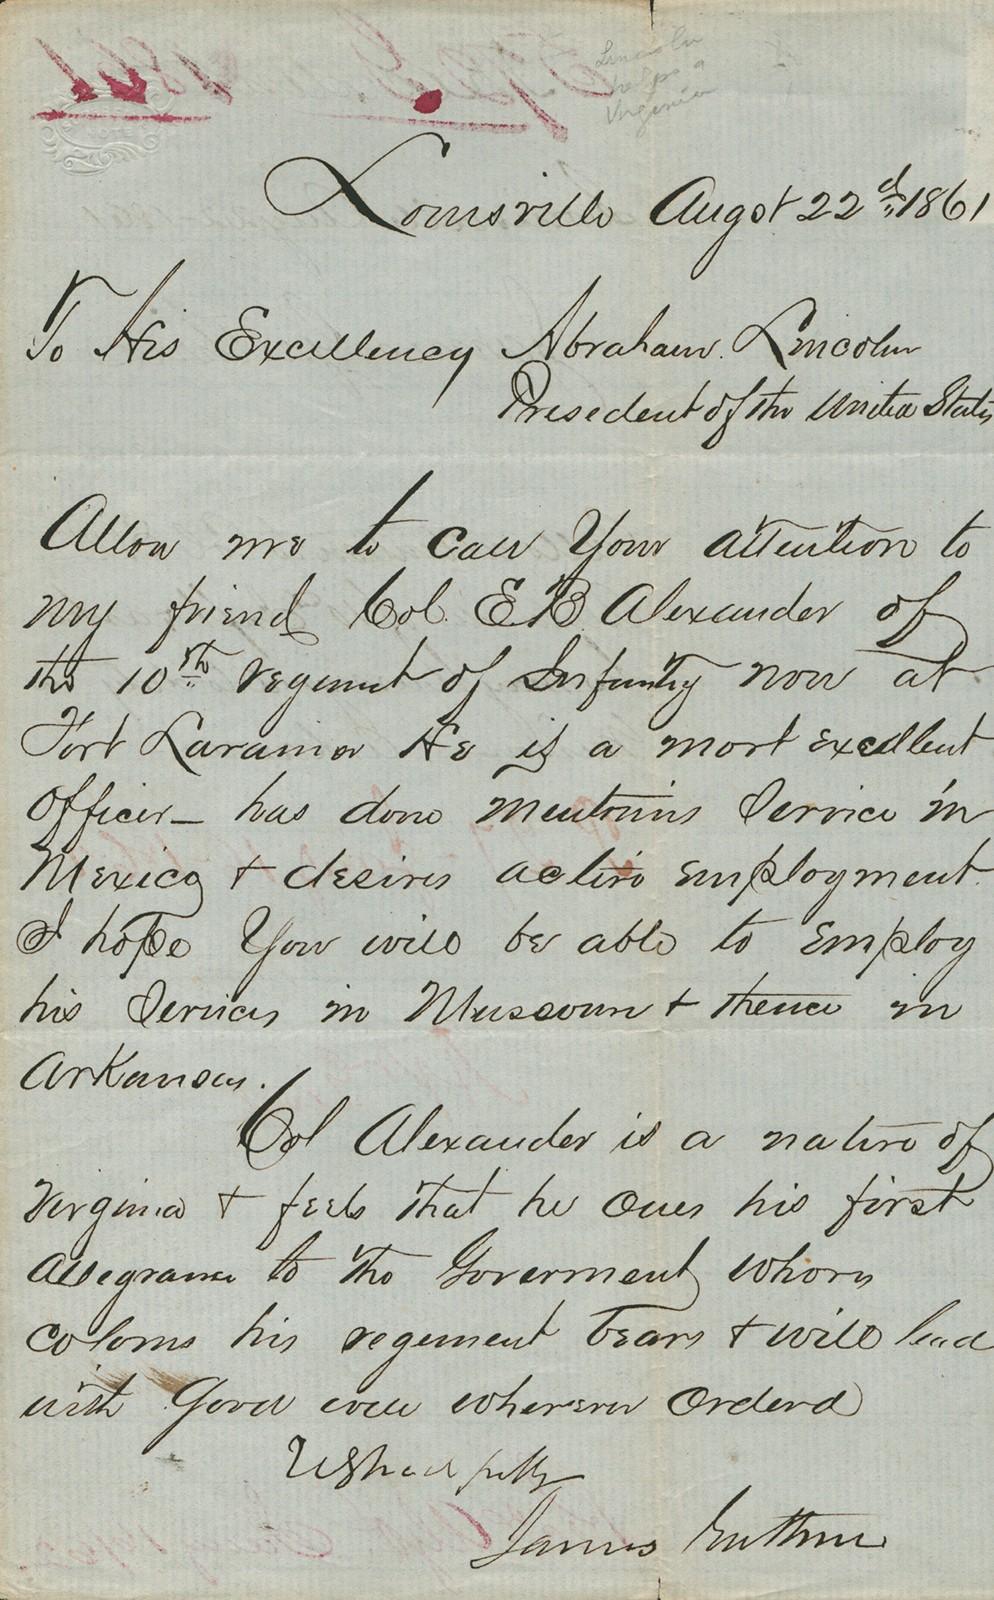 Lincoln
helps a
Virginia
Louisville Augst 22d 1861
To His Excellency Abraham Lincoln
Presedent of the United States
Allow me to call Your attention to
my friend Col. E B Alexander of
the 10th regiment of Infantry now at
Fort Laramer He is a most excellent
Officer_ has done Meutrius Service in
Mexico & desires active employment.
I hope You will be able to Employ
his Services in Missouri & thence in
Arkansas.
Col Alexander is a native of
Virginia & feels that he Owes his first
Allegiance to the Goverment whors
Colors his regement bears & will lead
with Good will wherever Orderd
Respectfully
James Guthrie